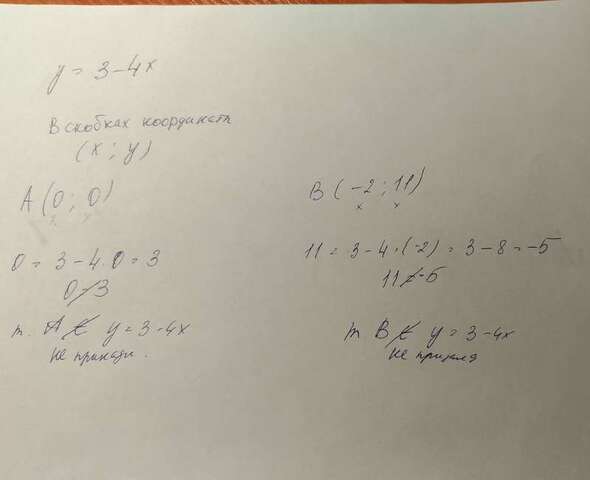 y = 3 - 4x
В скобках координаты
(x ; y)
A (0 ; 0)
x y
0 = 3 - 4 · 0 = 3
0 ≠ 3
т. A ∉ y = 3 - 4x
не принадл.
B (-2 ; 11)
x x
11 = 3 - 4 · (-2) = 3 - 8 = -5
11 ≠ -5
т. B ∉ y = 3 - 4x
не